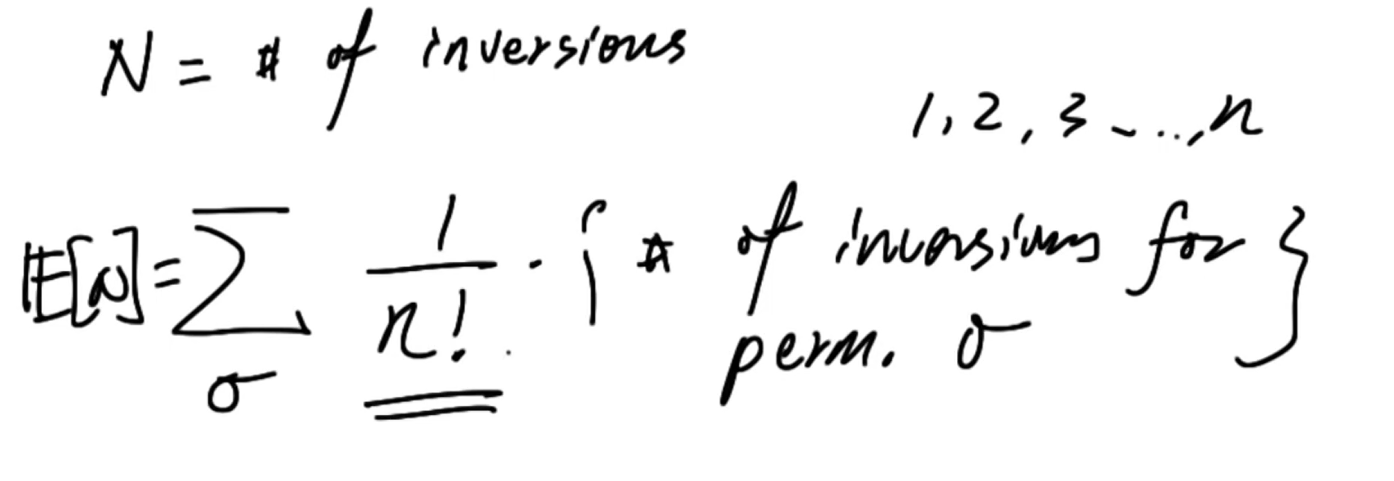 N = # of inversions
1, 2, 3 - ..., n
E[N] = Σ_σ 1/n! · { # of inversions for perm. σ }